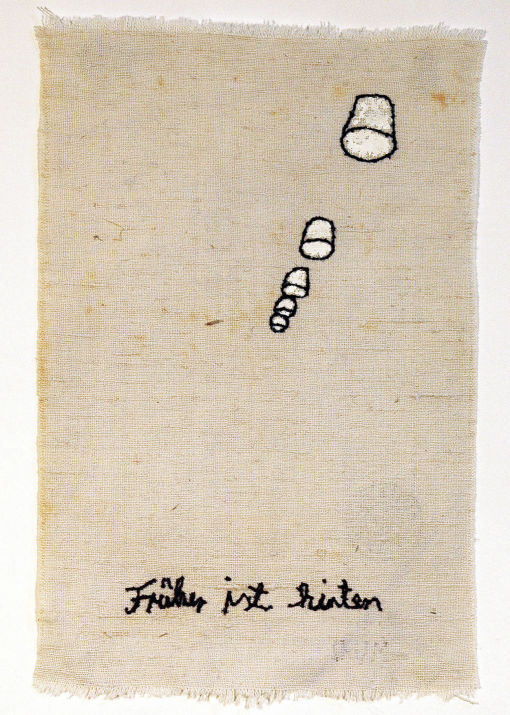 Früher ist hinten